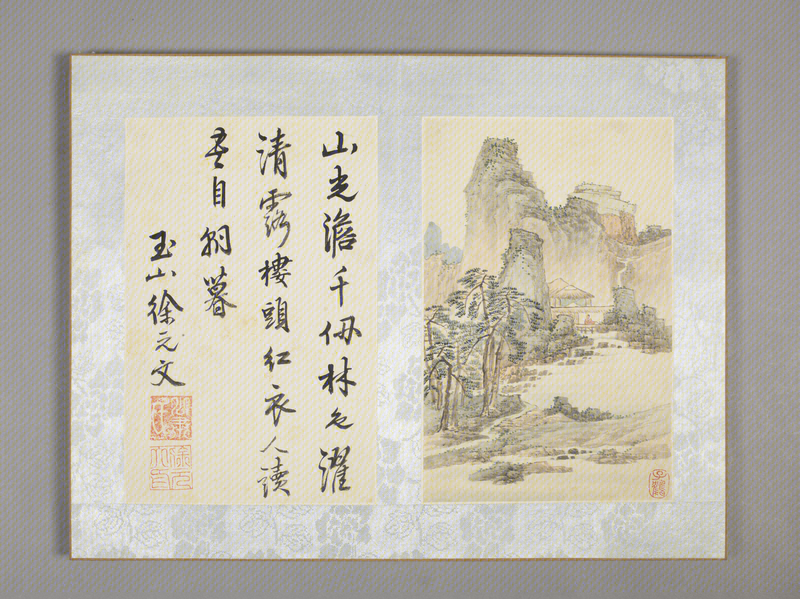 山光澹千仭林色濯
清露樓頭紅衣人讀
書自朝暮
玉山徐元文